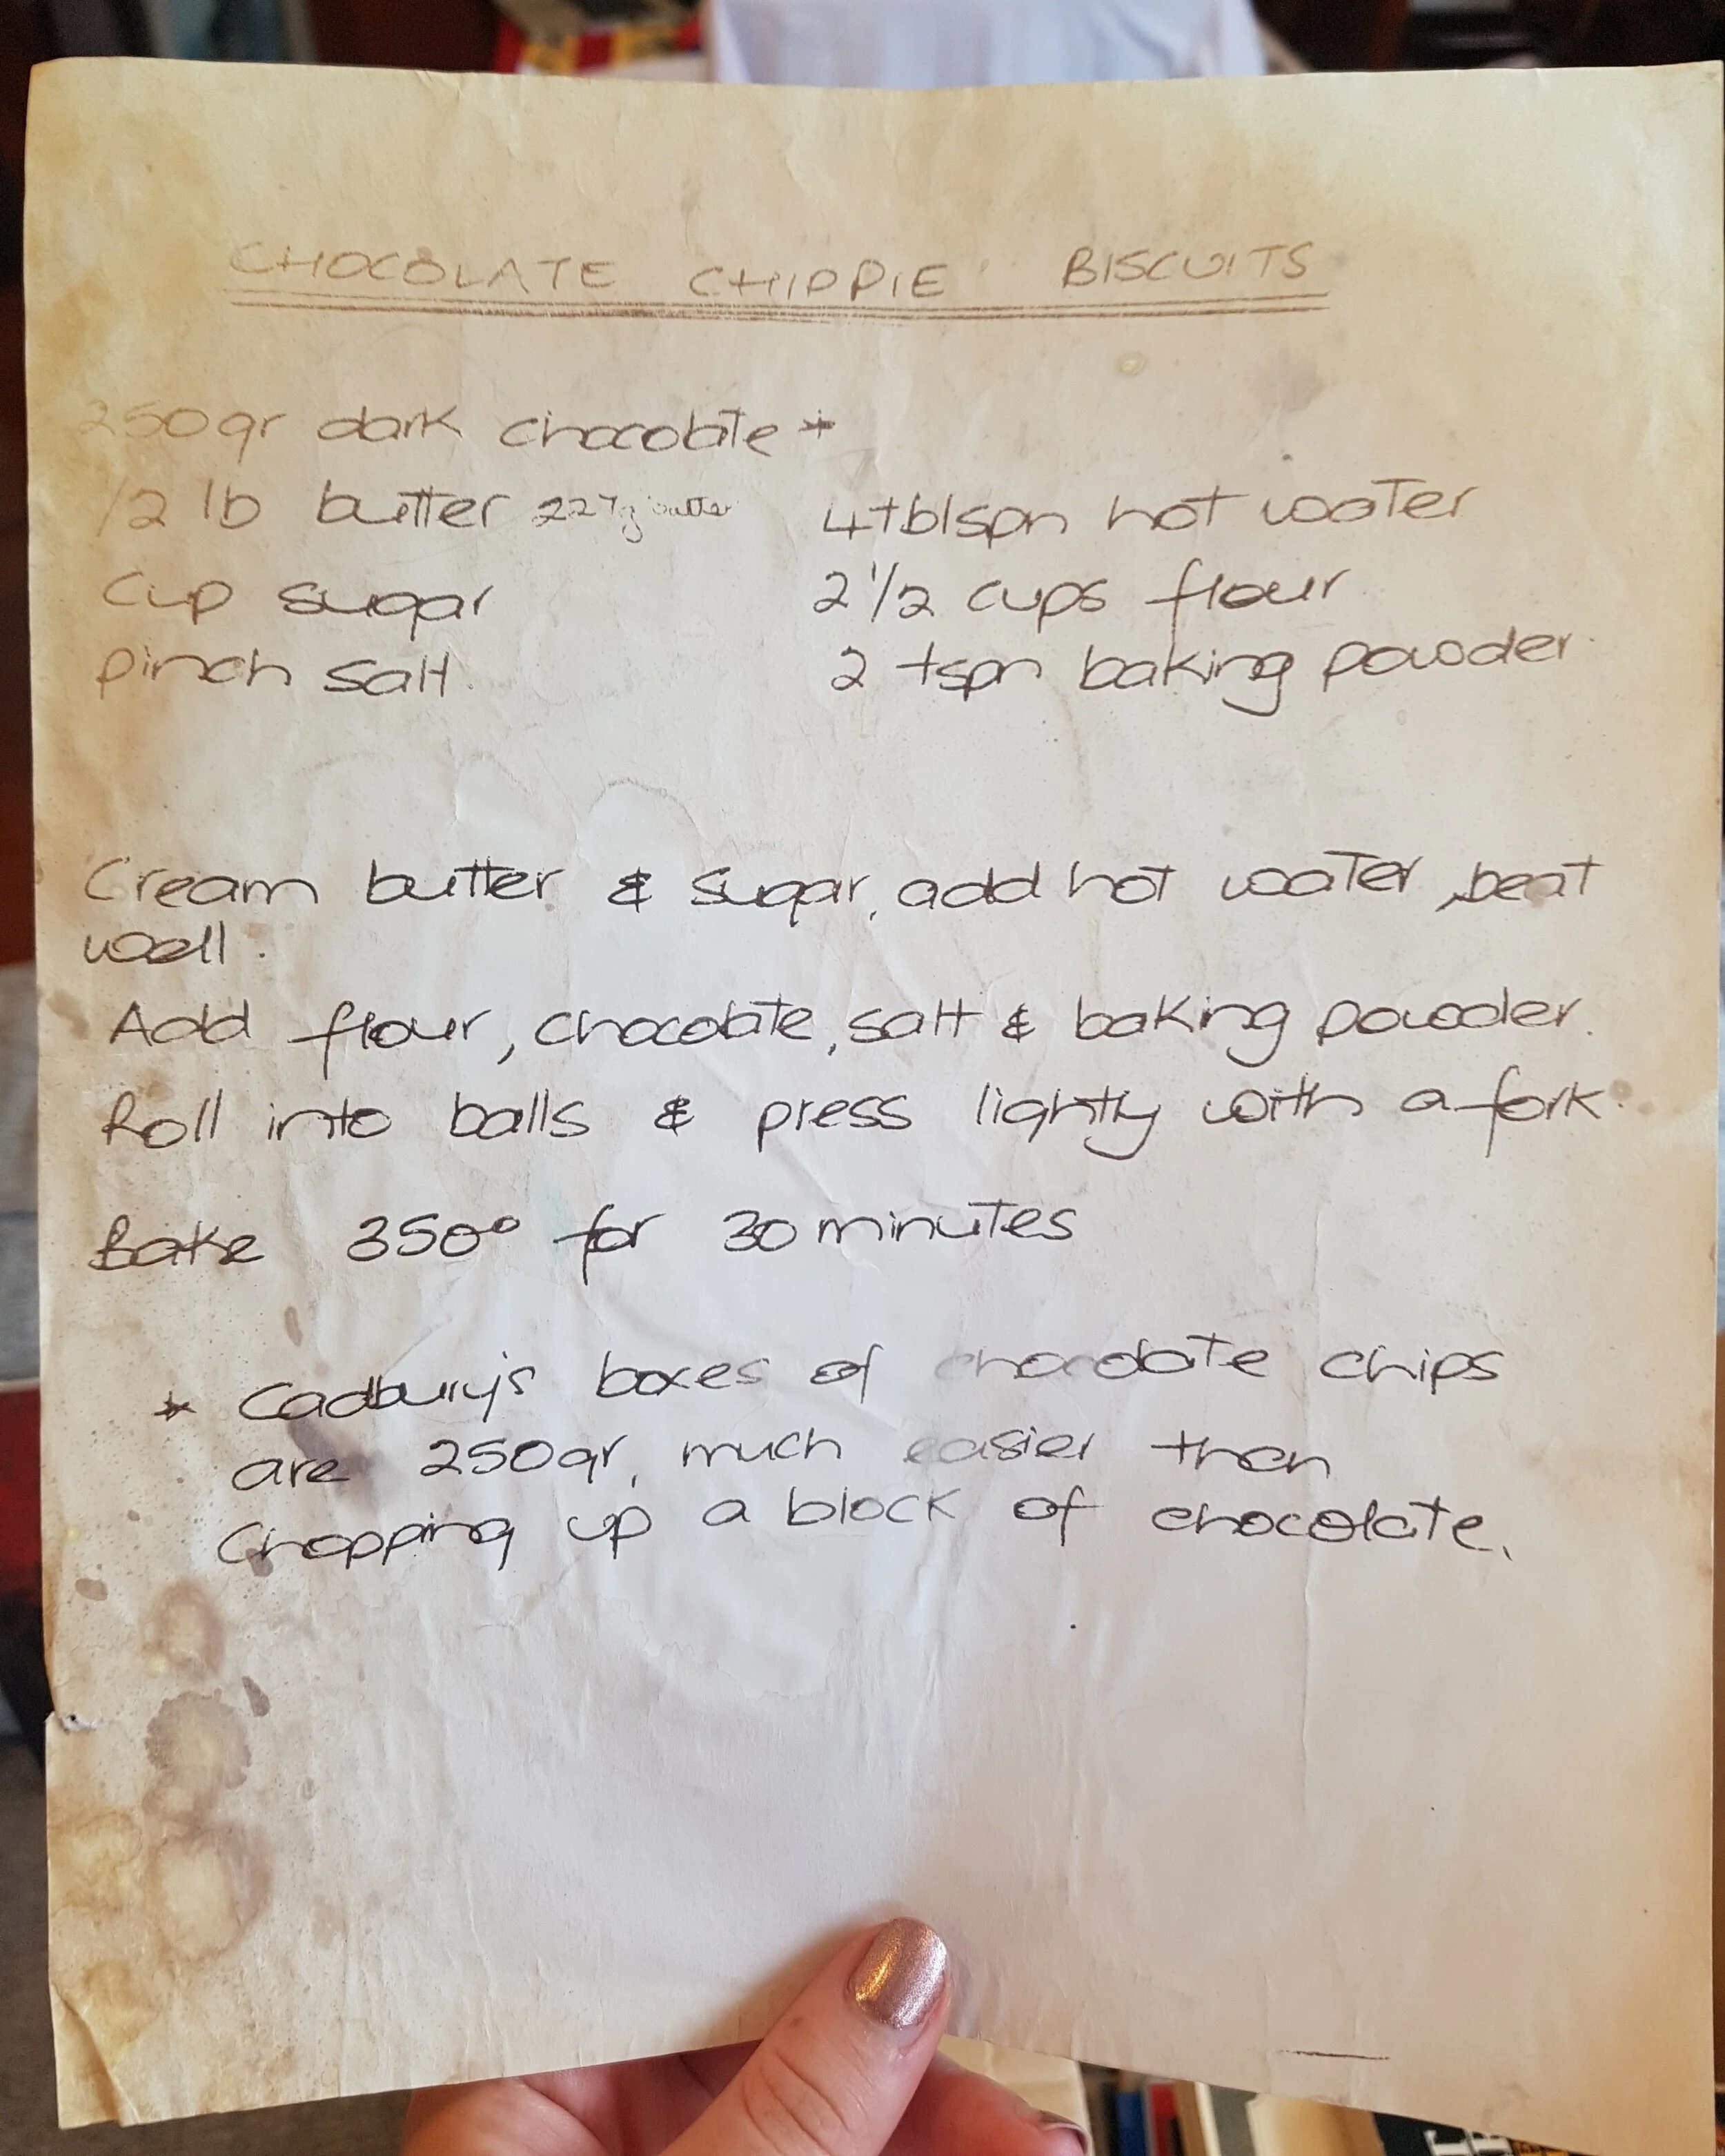 CHOCOLATE CHIPPIE BISCUITS
250gr dark chocolate *
1/2 lb butter 227g butter
Cup sugar
pinch salt.
4tblspn hot water
2 1/2 cups flour
2 tspn baking powder.
Cream butter & sugar, add hot water, beat
well.
Add flour, chocolate, salt & baking powder.
Roll into balls & press lightly with a fork.
Bake 350° for 30 minutes
* Cadbury's boxes of chocolate chips
are 250gr, much easier than
Chopping up a block of chocolate.